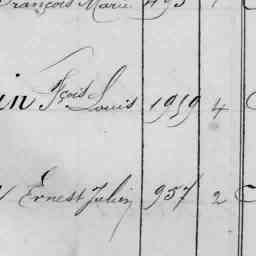 François Marie 495 1
in Fçois Louis 1919 4
Ernest Julien 957 2